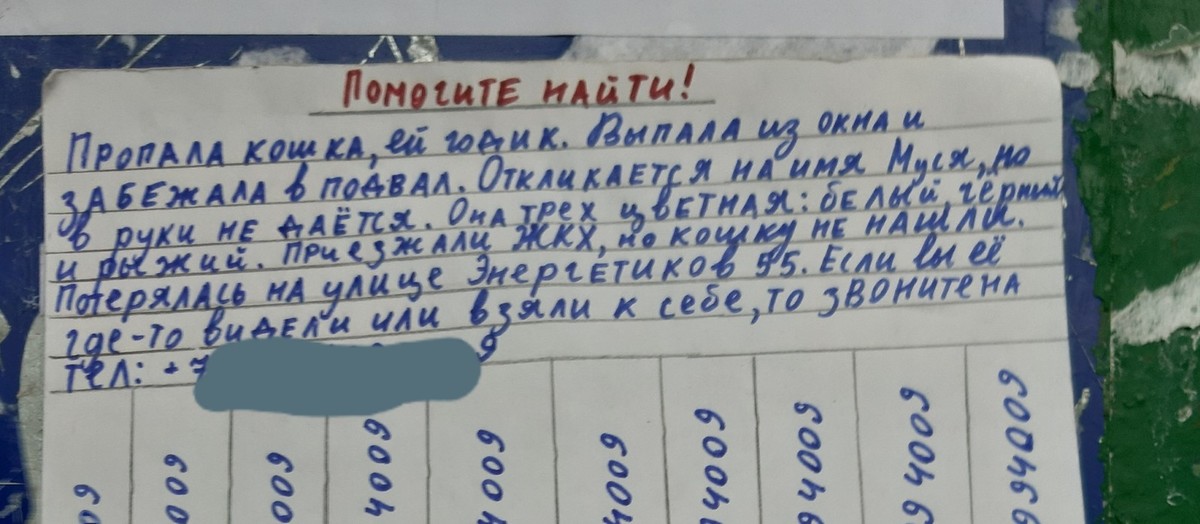 Помогите найти!
Пропала кошка, ей годик. Выпала из окна и
забежала в подвал. Откликается на имя Муся, но
в руки не даётся. Она трех цветная: белый, чёрный
и рыжий. Приезжали ЖКХ, но кошку не нашли.
Потерялась на улице Энергетиков 55. Если вы её
где-то видели или взяли к себе, то звоните на
тел: +7 9
09
009
009
4009
4009
4009
94009
94009
94009
994009